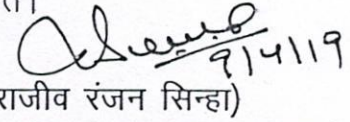 9/4/19
राजीव रंजन सिन्हा)